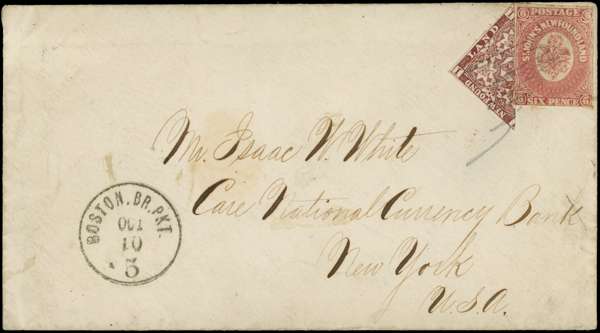 LAND
NEWFOUND
POSTAGE
ST. JOHN'S NEWFOUNDLAND
SIX PENCE
6
6
6
6
Mr. Isaac W. White
Care National Currency Bank
New York
U.S.A.
BOSTON. BR. PKT.
OCT
10
5